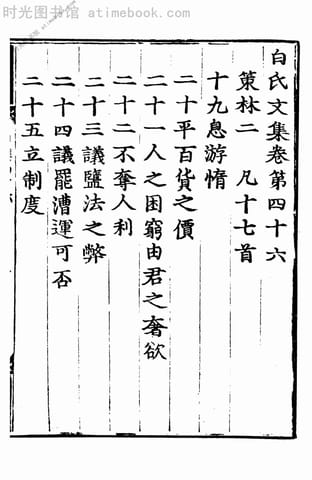 时光图书馆 atimebook.com
白氏文集卷第四十六
策林二 凡十七首
十九息游惰
二十平百貨之價
二十一人之困窮由君之奢欲
二十二不奪人利
二十三議鹽法之弊
二十四議罷漕運可否
二十五立制度